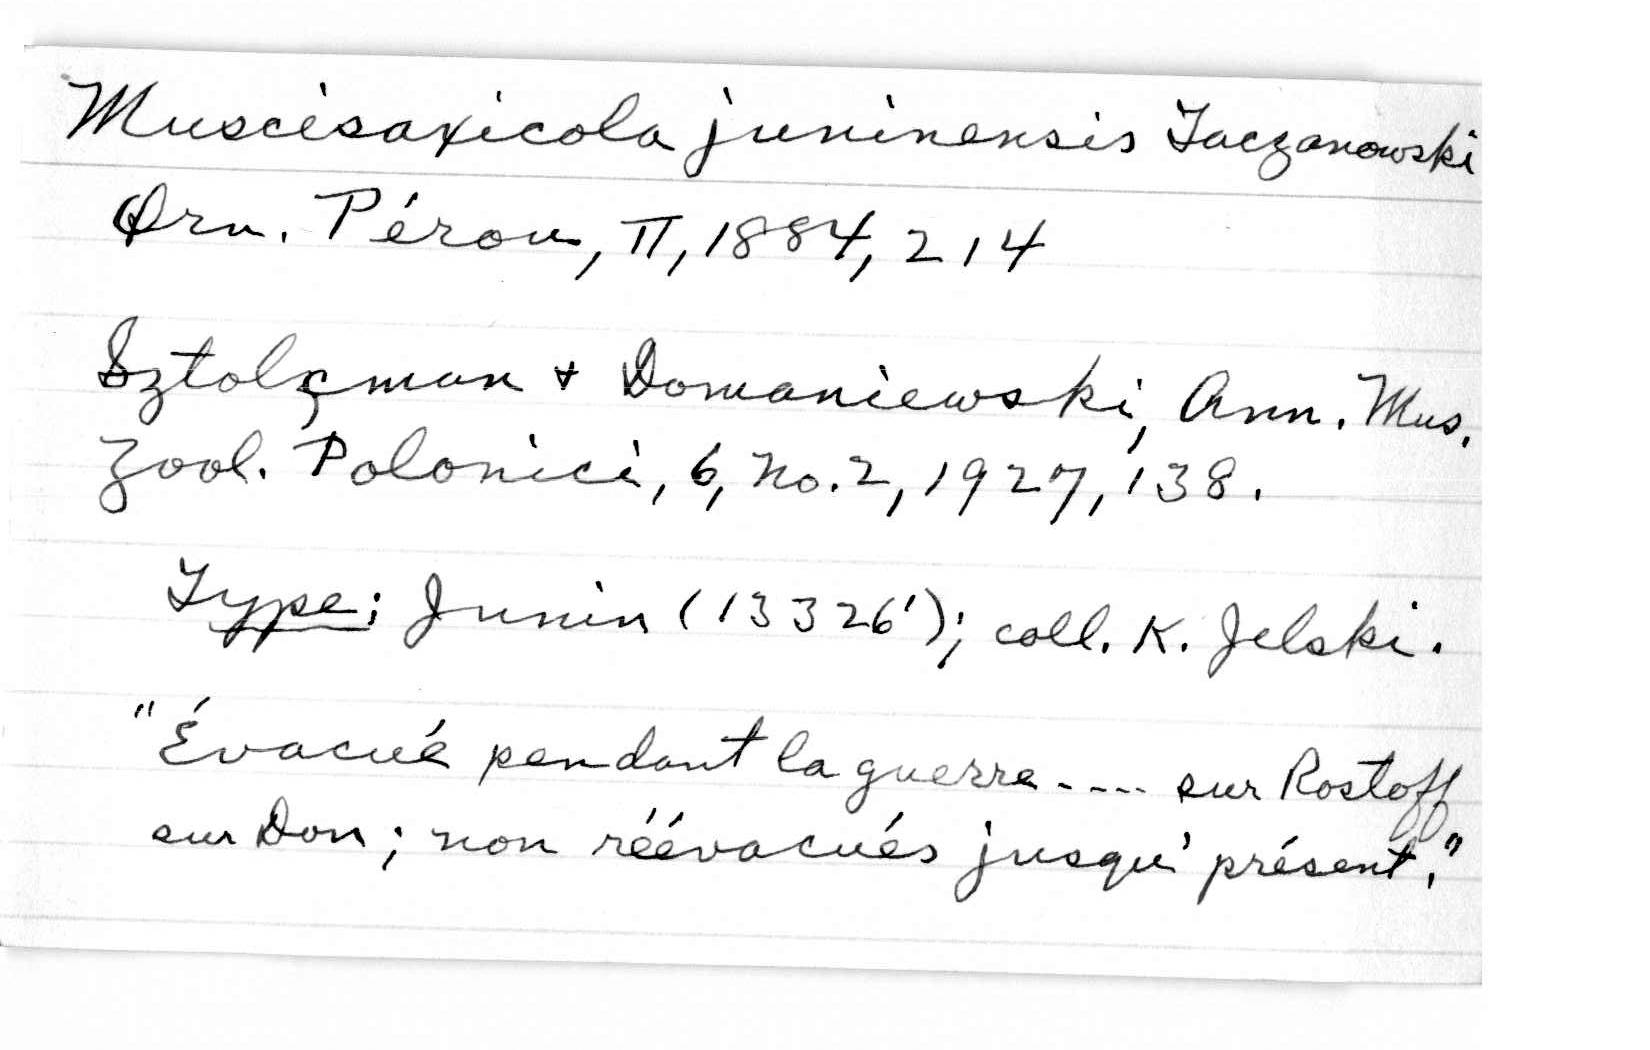 Muscisaxicola juninensis Taczanowski
Orn. Pérou, II, 1884, 214
Sztolcman + Domaniewski, Ann. Mus.
Zool. Polonici, 6, no. 2, 1927, 138.
Type: Junin (13326'); coll. K. Jelski.
"Évacué pendant la guerre---- sur Rostoff
sur Don; non réévacués jusqu' présent."